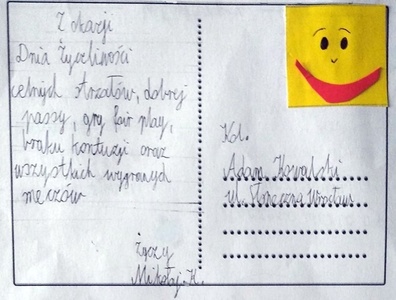 Z okazji
Dnia Życzliwości
celnych strzałów, dobrej
passy, gry fair play,
braku kontuzji oraz
wszystkich wygranych
meczów
życzy
Mikołaj. K.
Kol.
Adam Kowalski
ul. Słoneczna Wrocław